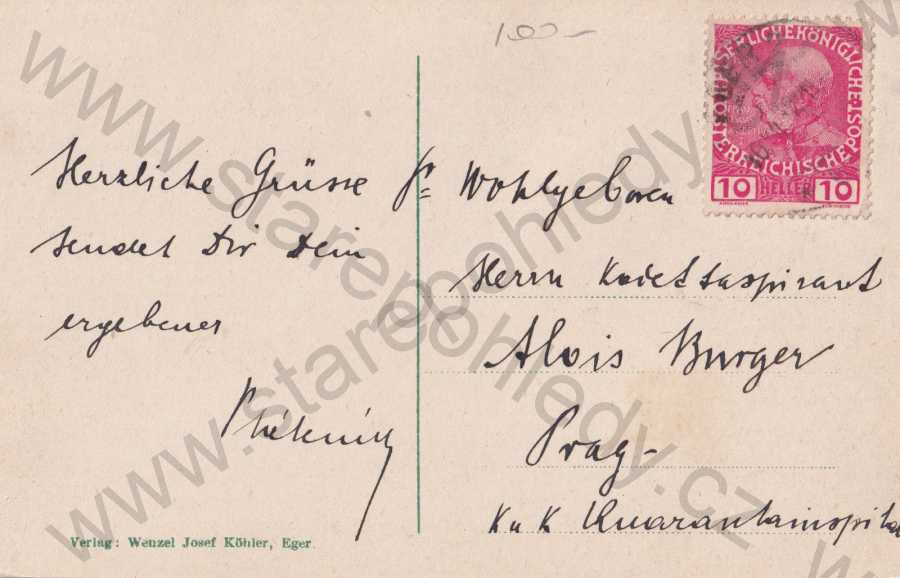 100-
KAISERLICHE KÖNIGLICHE
ÖSTERREICHISCHE POST
10 HELLER 10
Herzliche Grüsse
sendet Dir Dein
ergebener
Sr Wohlgeboren
Herrn Kadettaspirant
Alois Burger
Prag-
K u K Quarantainspital
Verlag: Wenzel Josef Köhler, Eger.
www.starepohledy.cz
www.starepohledy.cz